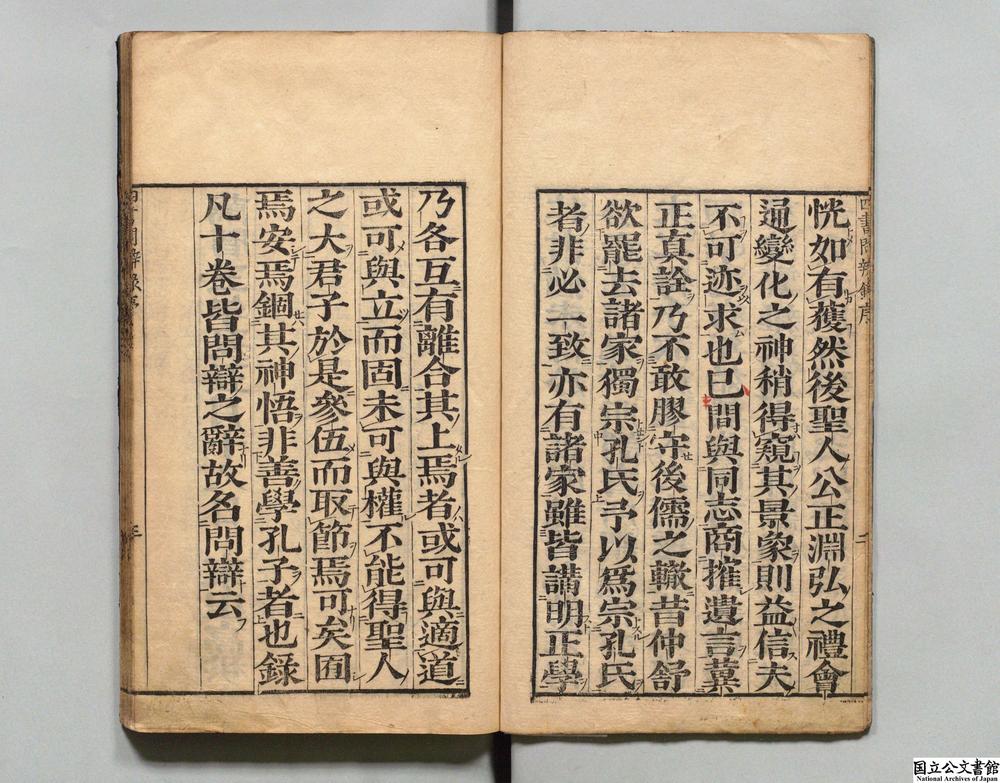 四書問辨録序
恍如有獲然後聖人公正淵弘之禮會
通變化之神稍得窺其景象則益信夫
不可迹求也已間與同志商搉遺言蘉
正真詮乃不敢膠守後儒之轍昔仲舒
欲罷去諸家獨宗孔氏予以爲宗孔氏
者非必一致亦有諸家雖皆講明正學
乃各互有離合其上焉者或可與適道
或可與立而固未可與權不能得聖人
之大君子於是參伍而取節焉可矣固
焉安焉錮其神悟非善學孔子者也録
凡十卷皆問辯之辭故名問辯云
国立公文書館
National Archives of Japan